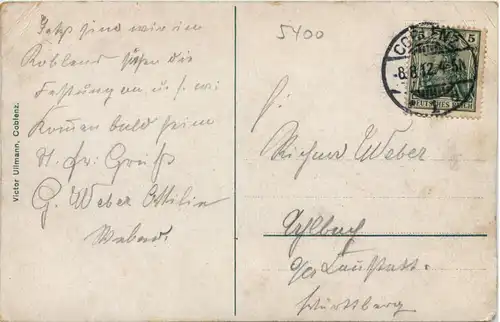 Jetzt sind wir in
Koblenz sehen die
Festung an u. s. w.
Komen bald heim
H. Gruß
G. Weber Ottilie
Weber.
Victor Ullmann, Coblenz.
5400
COBLENZ
-8.8.12.
1
5
DEUTSCHES REICH
H:
Richard Weber
Württemberg